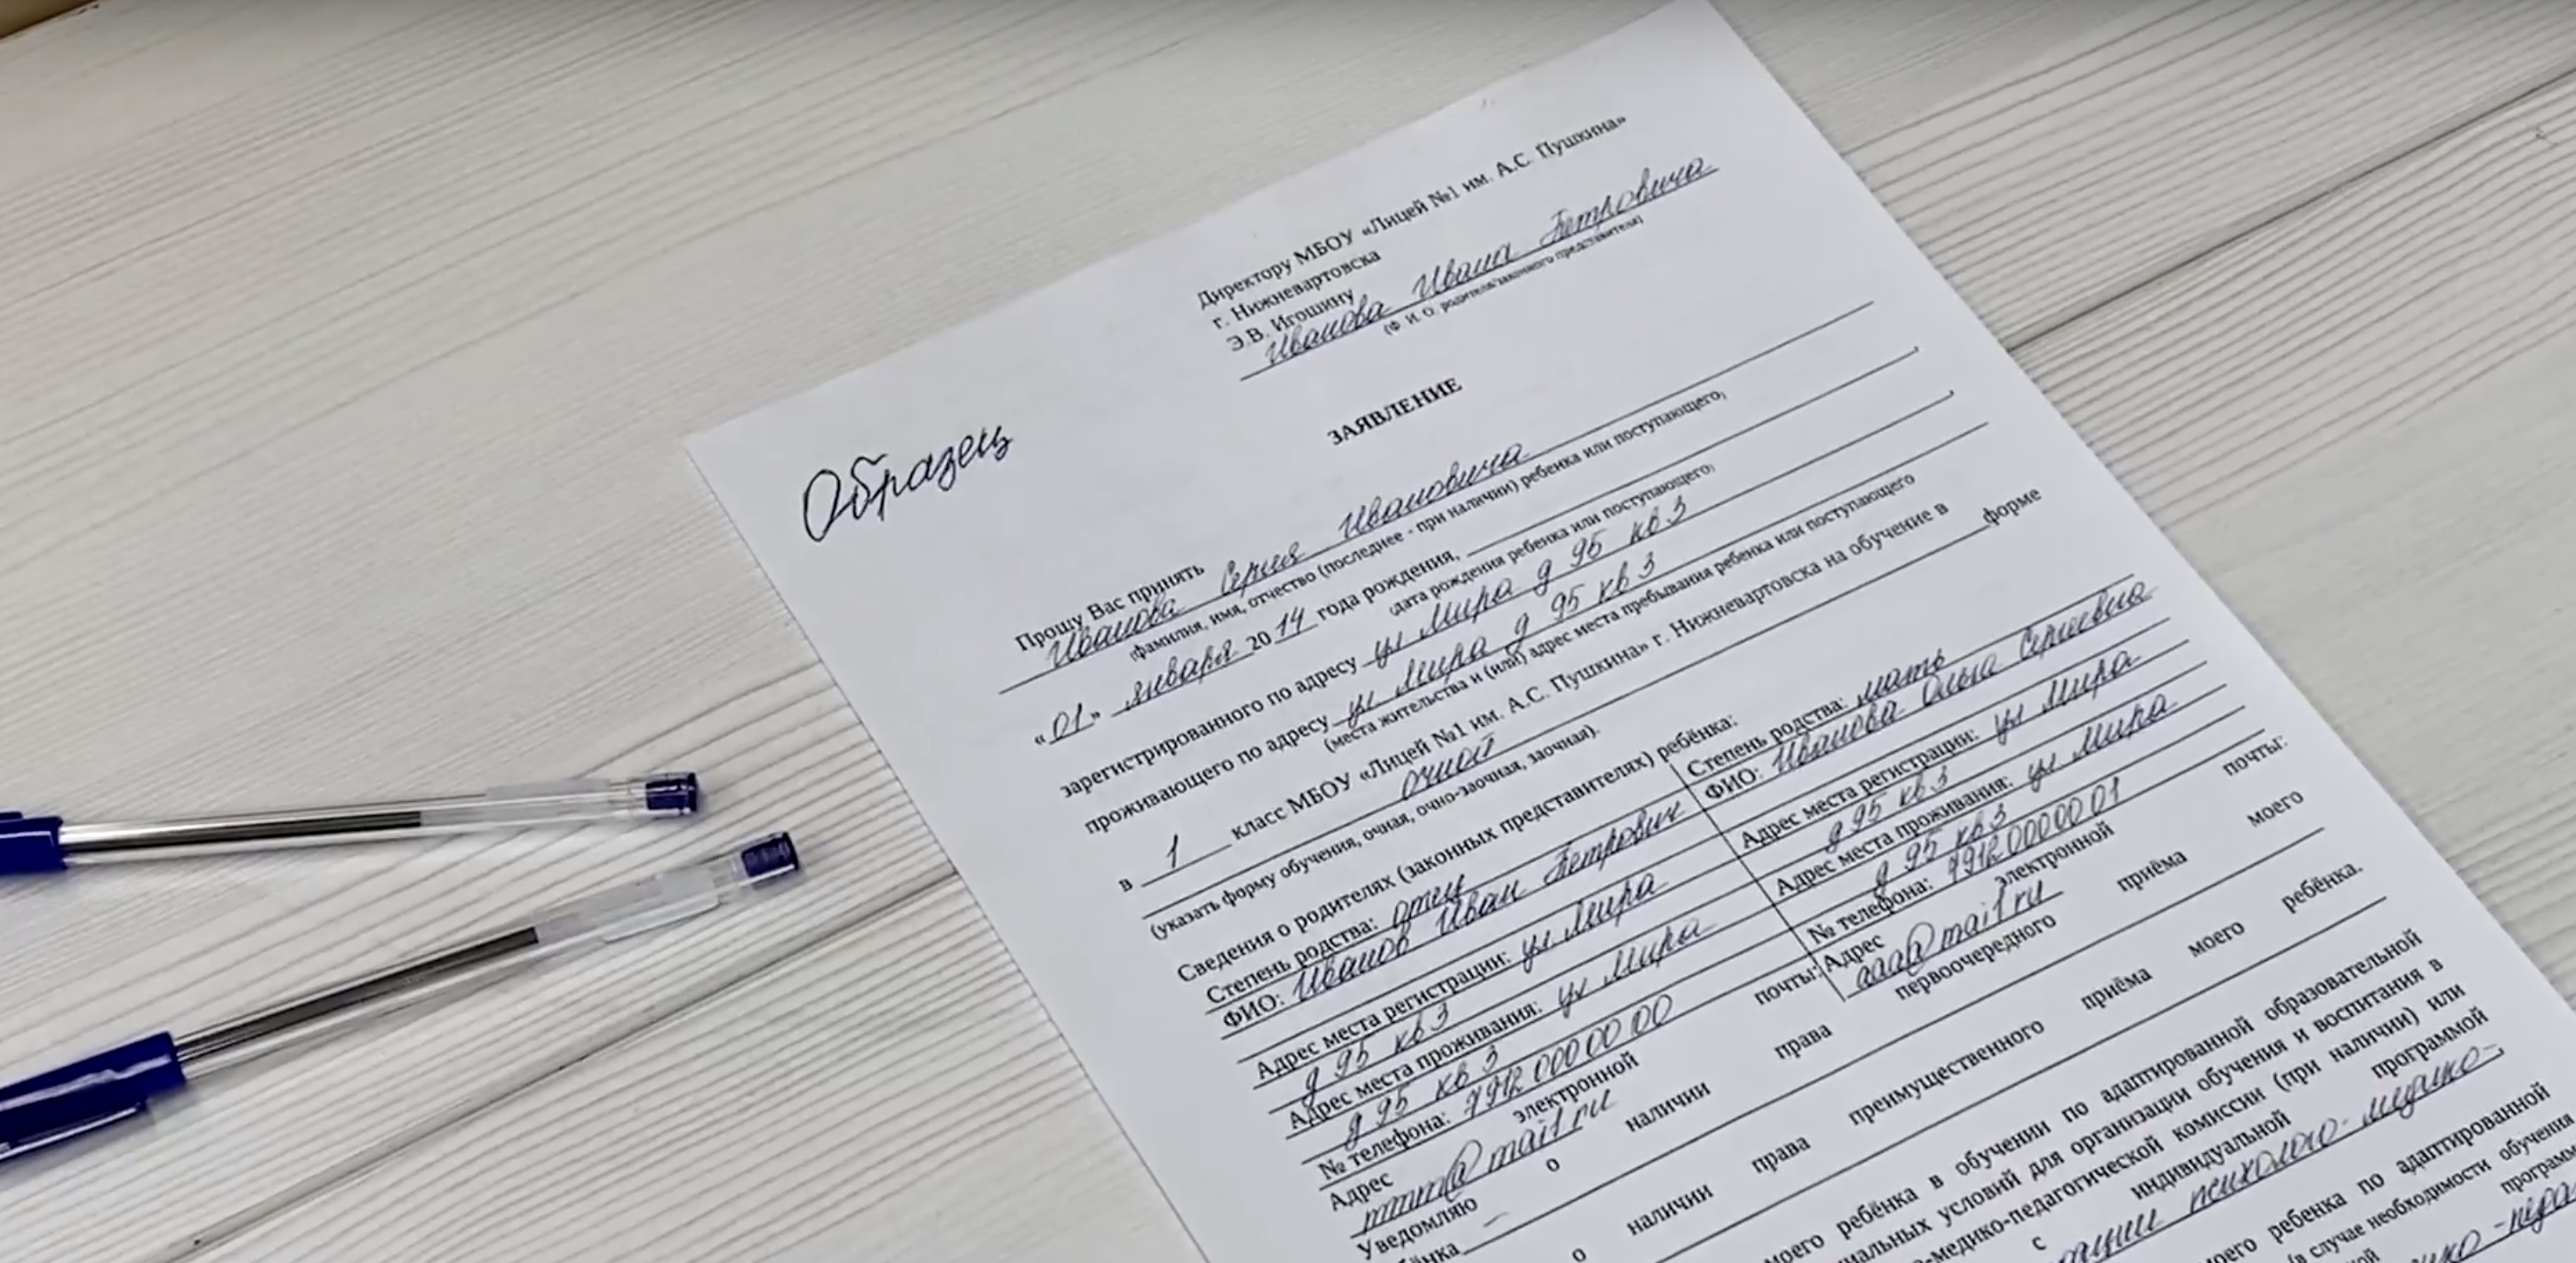 Директору МБОУ «Лицей №1 им. А.С. Пушкина»
г. Нижневартовска
Э.В. Игошину
Иванова Ивана Петровича
(Ф. И. О. родителя/законного представителя)
Образец
ЗАЯВЛЕНИЕ
Прошу Вас принять
Иванова Сергея Ивановича
(фамилия, имя, отчество (последнее - при наличии) ребенка или поступающего,
«01» января 2014 года рождения,
(дата рождения ребенка или поступающего)
зарегистрированного по адресу ул Мира д 95 кв 3
проживающего по адресу ул Мира д 95 кв 3
(места жительства и (или) адрес места пребывания ребенка или поступающего
в 1 класс МБОУ «Лицей №1 им. А.С. Пушкина» г. Нижневартовска на обучение в
очной форме
(указать форму обучения, очная, очно-заочная, заочная).
Сведения о родителях (законных представителях) ребёнка:
Степень родства: отец
ФИО: Иванов Иван Петрович
Адрес места регистрации: ул Мира
д 95 кв 3
Адрес места проживания: ул Мира
д 95 кв 3
№ телефона: 79120000000
Адрес электронной почты:
mmm@mail ru
Степень родства: мать
ФИО: Иванова Ольга Сергеевна
Адрес места регистрации: ул Мира
д 95 кв 3
Адрес места проживания: ул Мира
д 95 кв 3
№ телефона: 79120000001
Адрес электронной почты:
aaa@mail ru
Уведомляю о наличии права первоочередного приёма моего
о наличии права преимущественного приёма моего ребёнка.
моего ребёнка в обучении по адаптированной образовательной
условий для организации обучения и воспитания в
комиссии (при наличии) или
с индивидуальной программой
психолого-медико-
ребенка по адаптированной
(в случае необходимости обучения